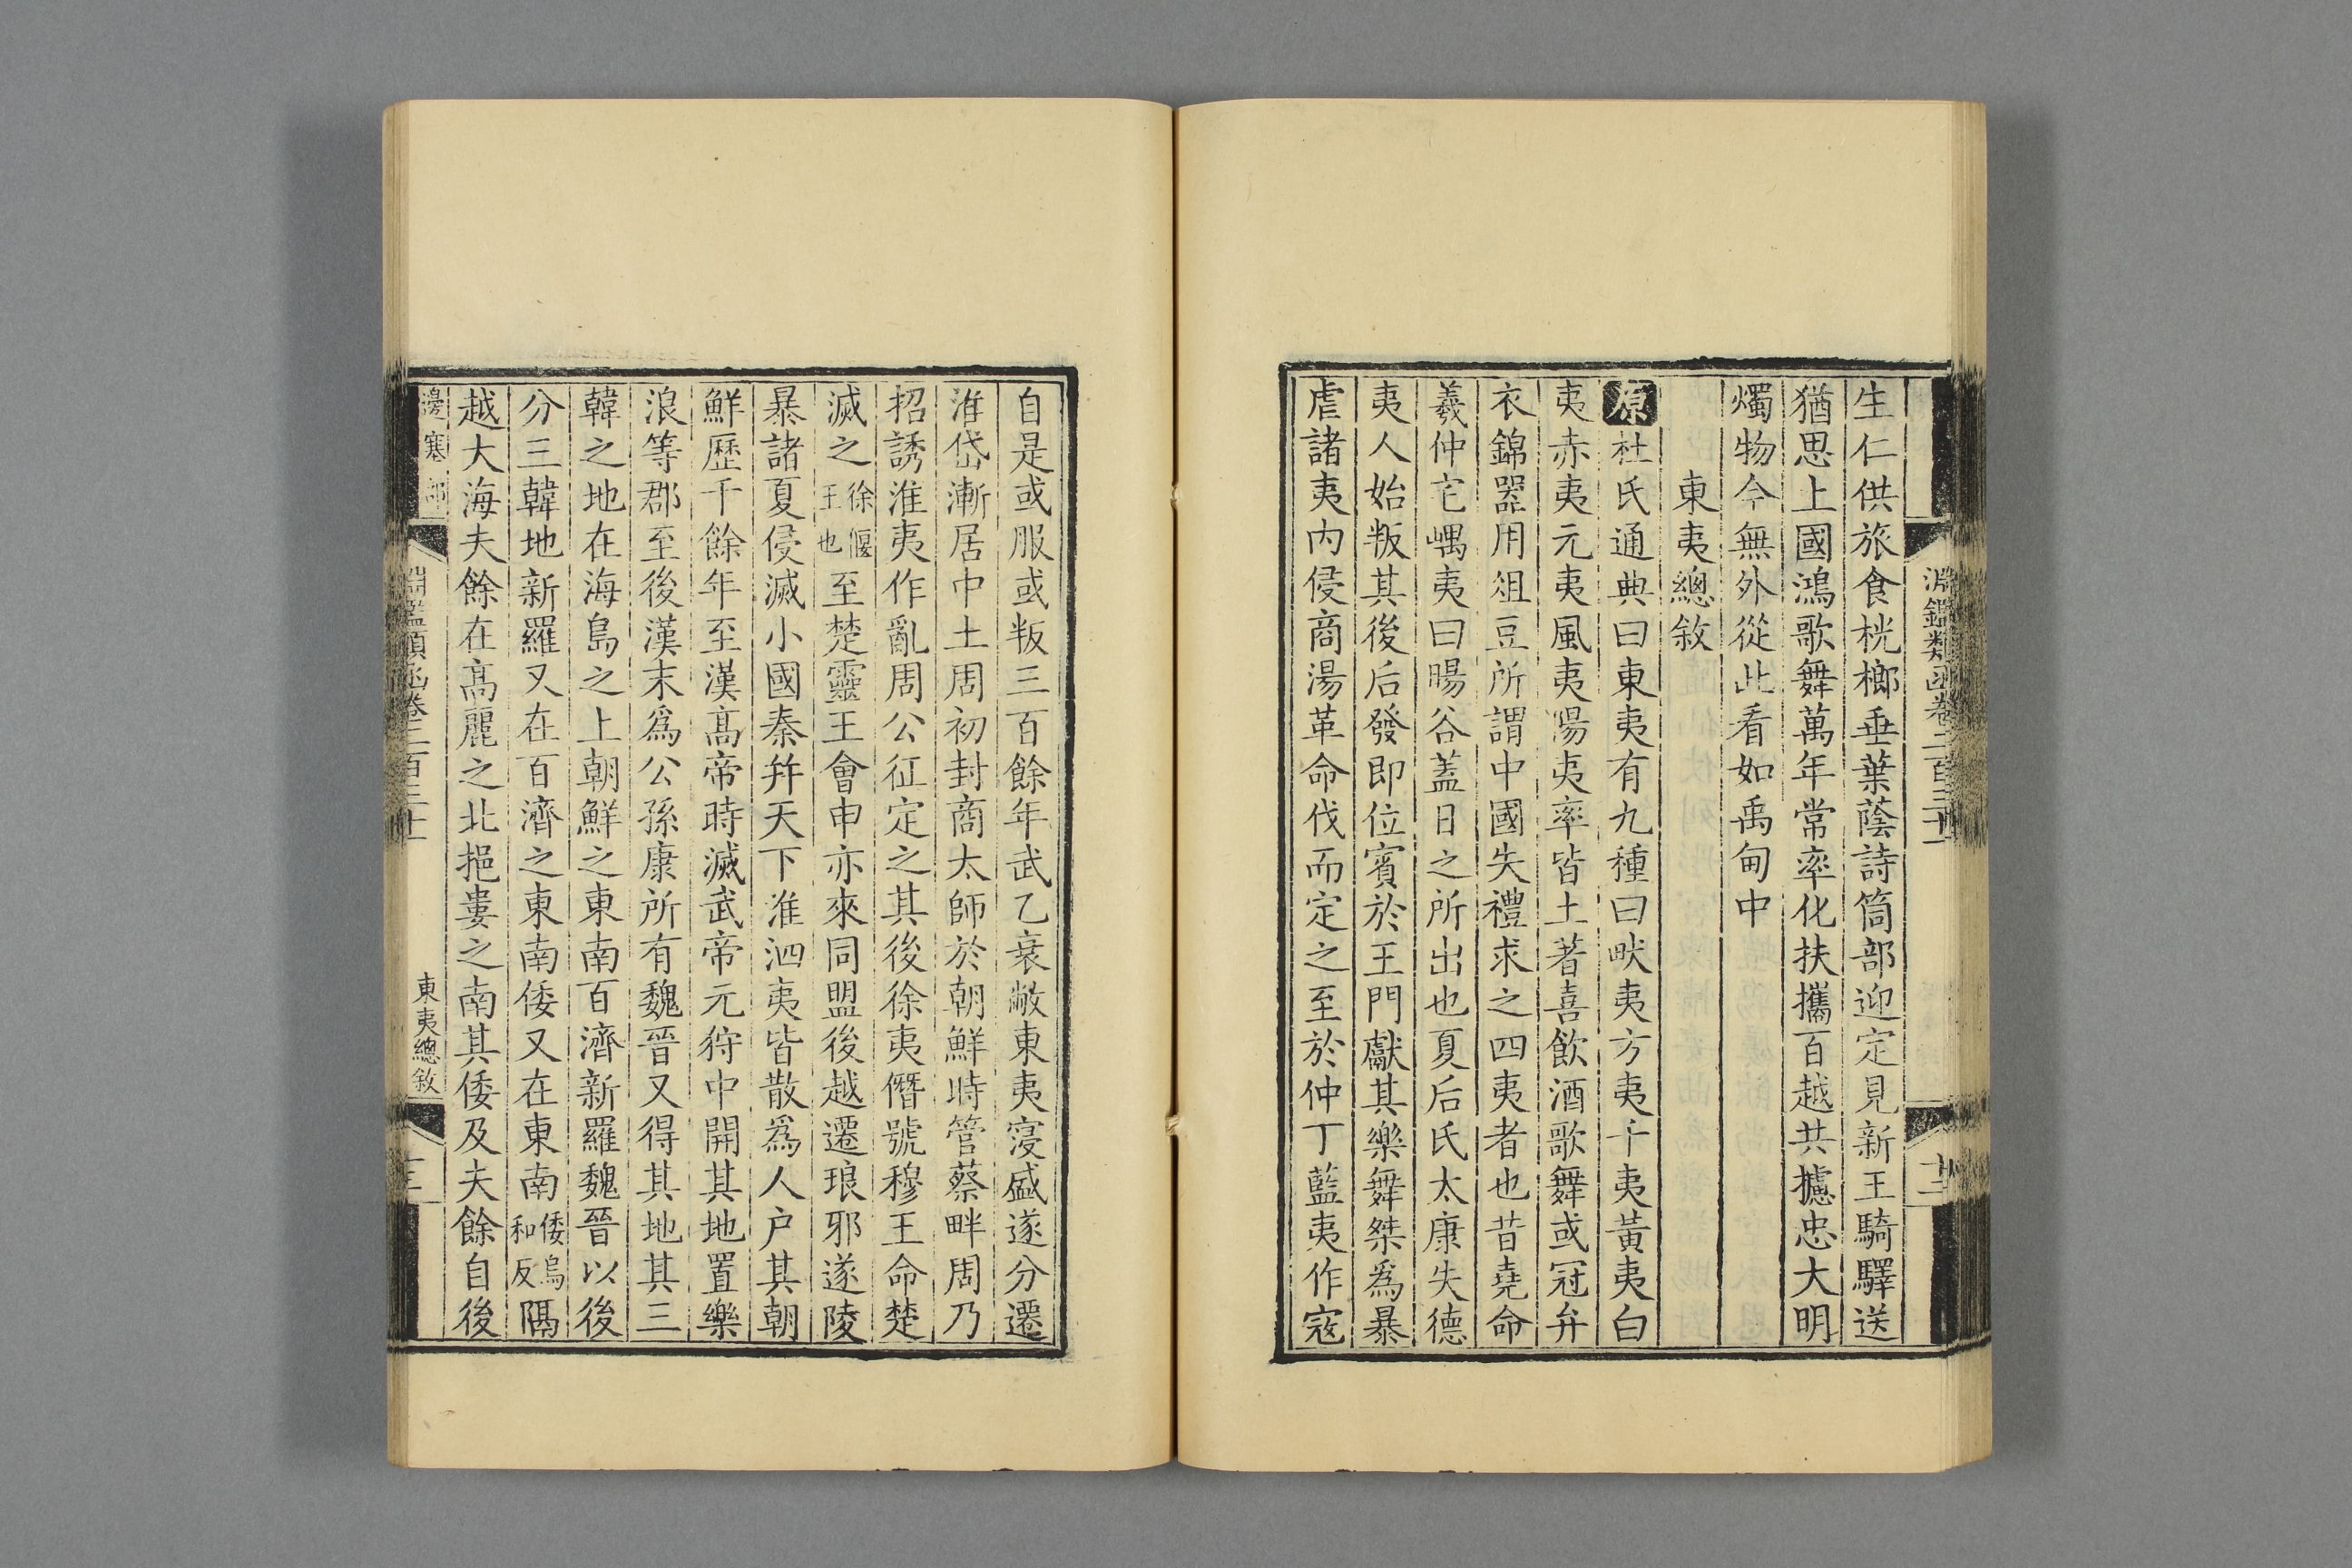 淵鑑類函卷二百三十一
生仁供旅食桄榔垂葉蔭詩筒部迎定見新王騎驛送
猶思上國鴻歌舞萬年常率化扶攜百越共攄忠大明
燭物今無外從此看如禹甸中
東夷總敘
原杜氏通典曰東夷有九種曰畎夷方夷千夷黃夷白
夷赤夷元夷風夷陽夷率皆土著喜飲酒歌舞或冠弁
衣錦器用俎豆所謂中國失禮求之四夷者也昔堯命
羲仲宅嵎夷曰暘谷蓋日之所出也夏后氏太康失德
夷人始叛其後后發即位賓於王門獻其樂舞桀爲暴
虐諸夷內侵商湯革命伐而定之至於仲丁藍夷作寇
自是或服或叛三百餘年武乙衰敝東夷寖盛遂分遷
淮岱漸居中土周初封商太師於朝鮮時管蔡畔周乃
招誘淮夷作亂周公征定之其後徐夷僭號穆王命楚
滅之徐偃王也至楚靈王會申亦來同盟後越遷琅邪遂陵
暴諸夏侵滅小國秦幷天下淮泗夷皆散爲人户其朝
鮮歷千餘年至漢高帝時滅武帝元狩中開其地置樂
浪等郡至後漢末爲公孫康所有魏晉又得其地其三
韓之地在海島之上朝鮮之東南百濟新羅魏晉以後
分三韓地新羅又在百濟之東南倭又在東南倭烏和反隔
越大海夫餘在高麗之北挹婁之南其倭及夫餘自後
邊塞部
淵鑑類函卷二百三十一
東夷總敘